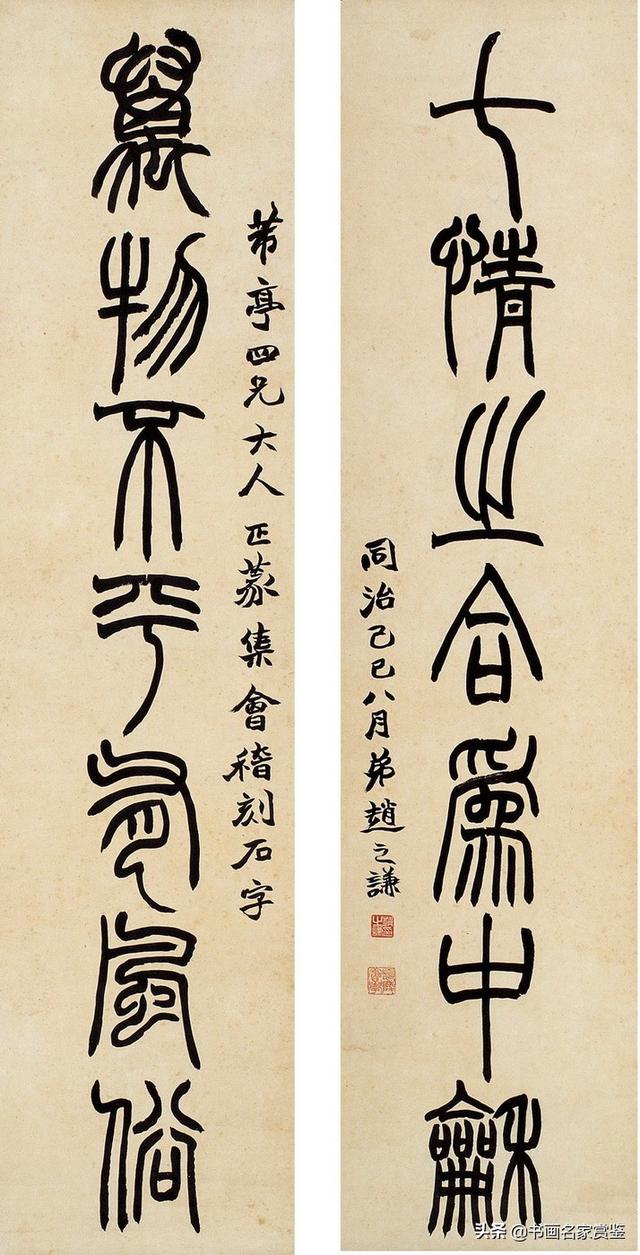 七情之合為中龢
同治己巳八月弟趙之謙
芾亭四兄大人正篆集會稽刻石字
萬物不平有風俗
头条 @书画名家赏鉴